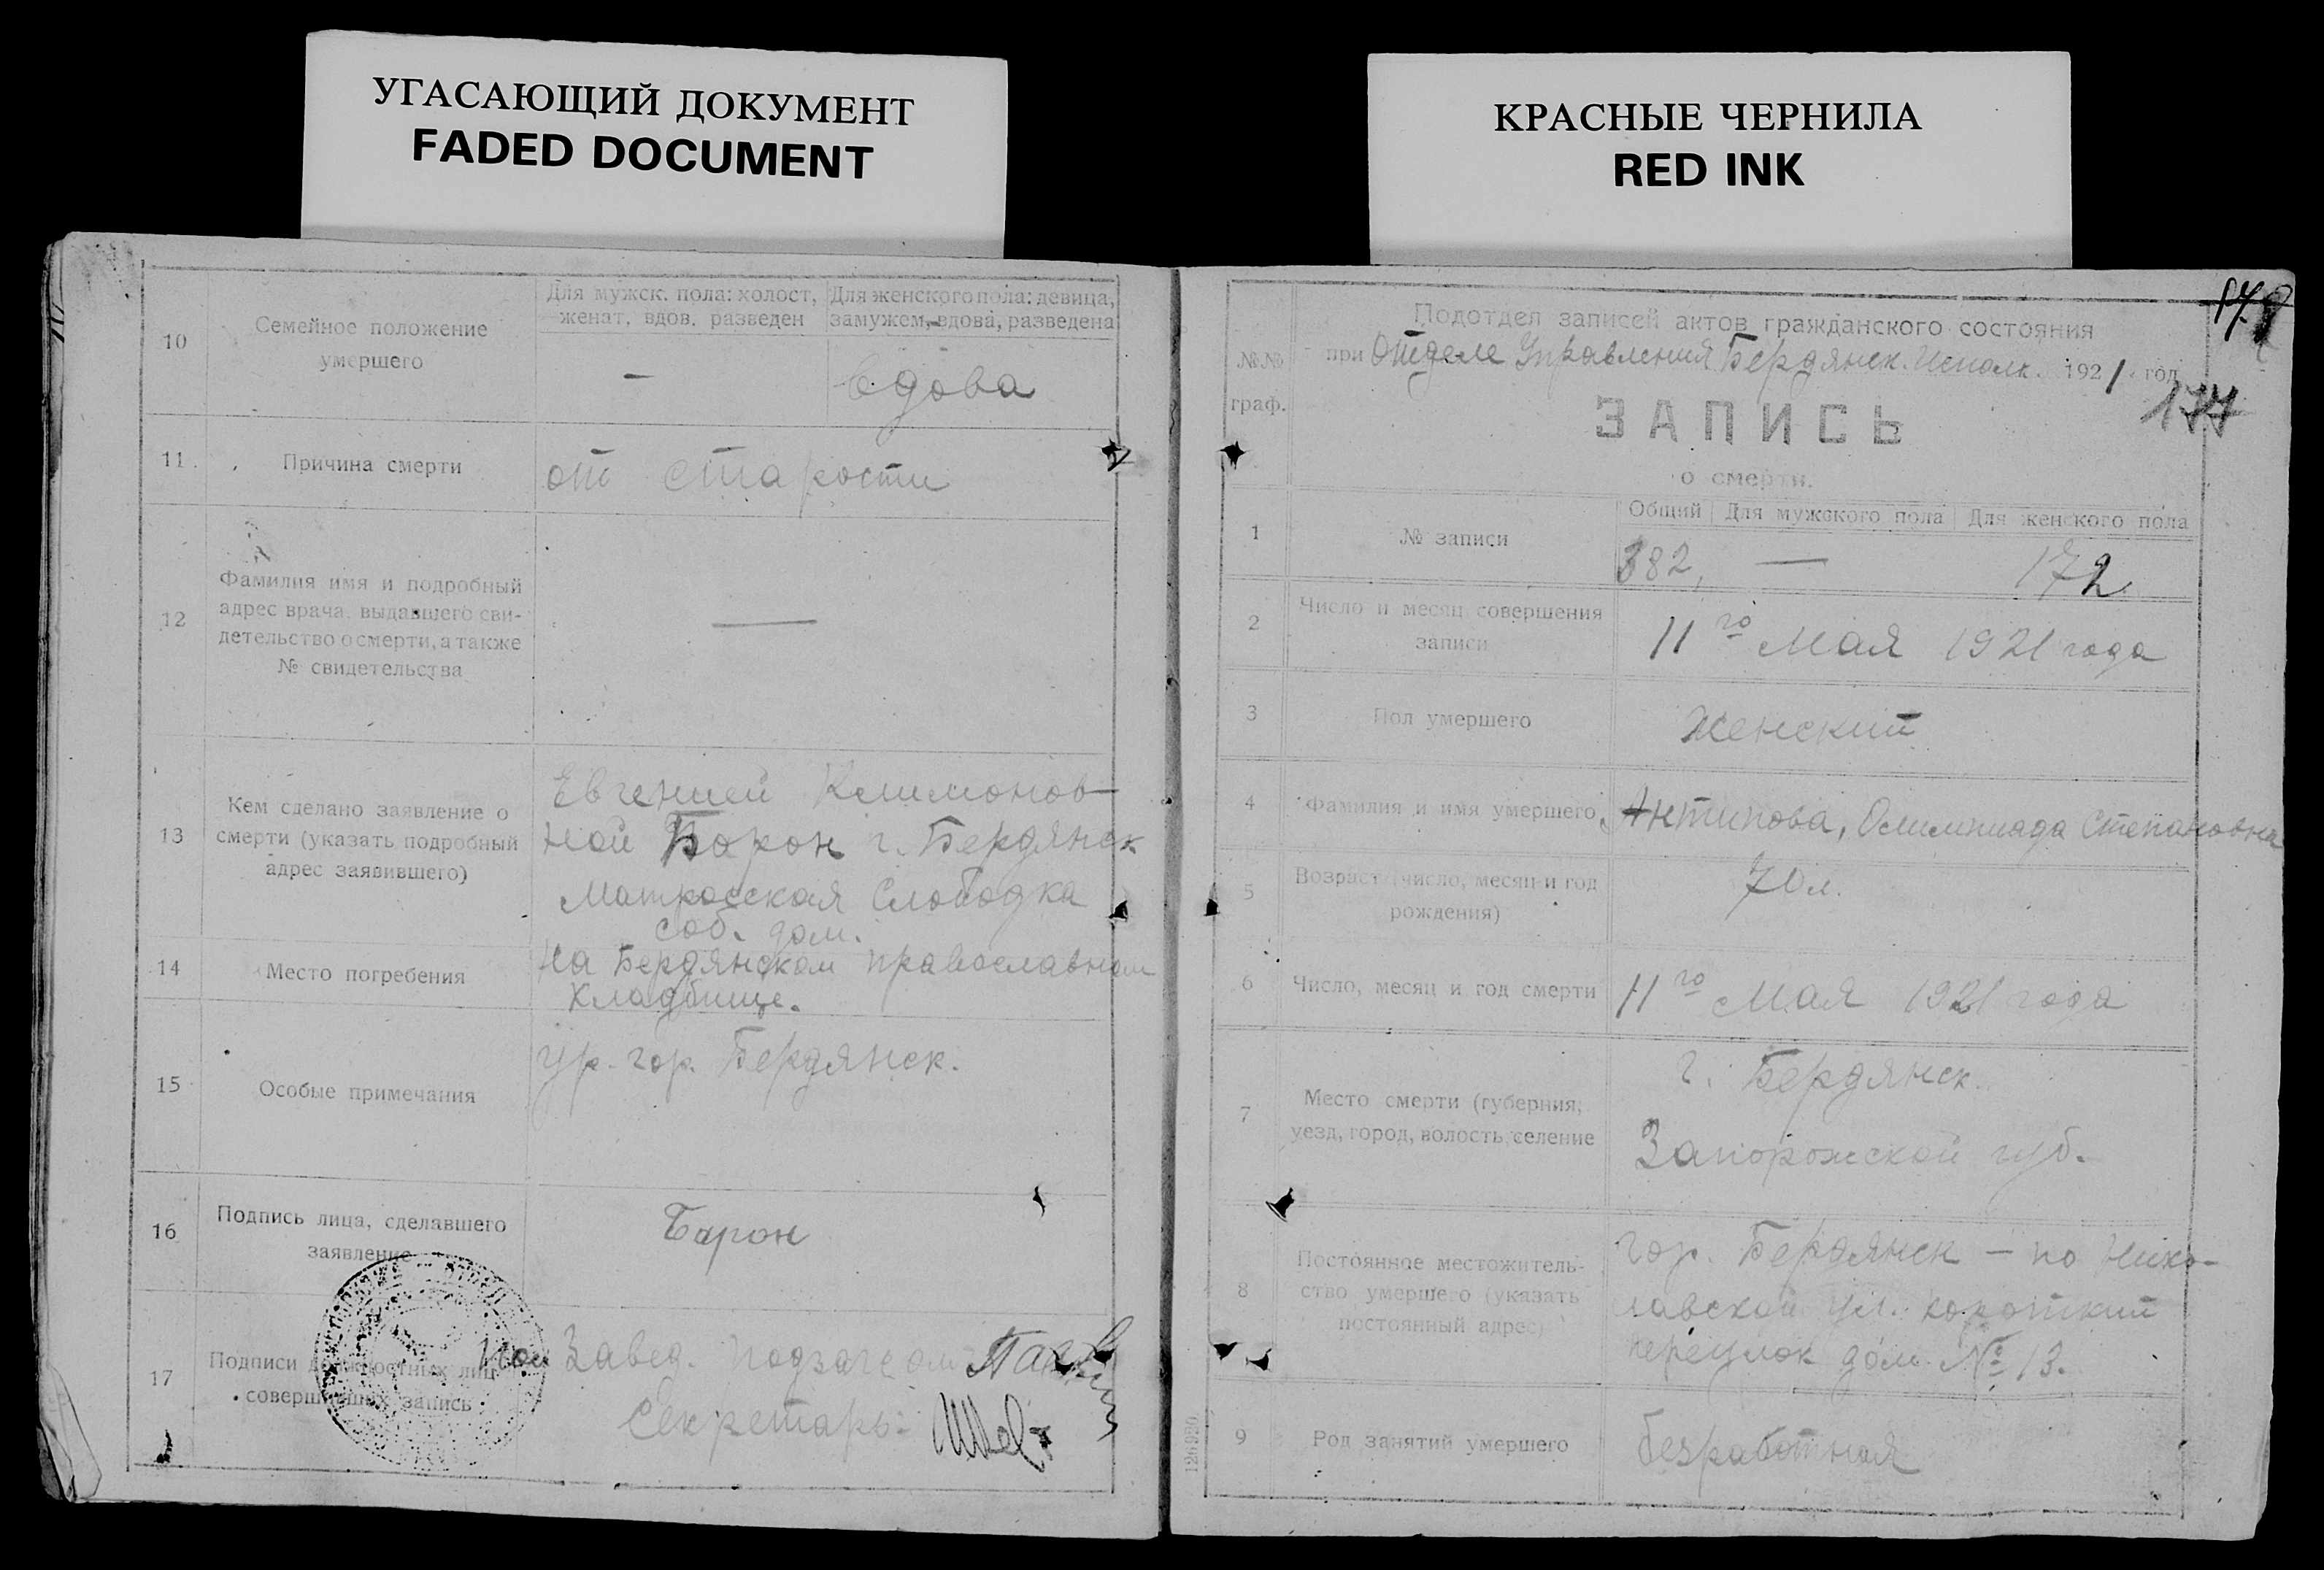 УГАСАЮЩИЙ ДОКУМЕНТ
FADED DOCUMENT
КРАСНЫЕ ЧЕРНИЛА
RED INK
10
Семейное положение
умершего
Для мужск. пола: холост,
женат, вдов, разведен
Для женского пола: девица,
замужем, вдова, разведена
—
вдова
11
Причина смерти
от старости
12
Фамилия имя и подробный
адрес врача, выдавшего сви-
детельство о смерти, а также
№ свидетельства
—
13
Кем сделано заявление о
смерти (указать подробный
адрес заявившего)
Евгенией Климонов-
ной Барон г. Бердянск
Матросская Слободка
соб. дом.
14
Место погребения
На Бердянском православном
кладбище.
15
Особые примечания
ур. гор. Бердянск.
16
Подпись лица, сделавшего
заявление
Барон
17
Подписи должностных лиц
совершивших запись
Завед. Подзагсом
Секретарь:
178
№№
граф.
Подотдел записей актов гражданского состояния
при Отделе Управления Бердянск. Исполк. 1921 год
177
ЗАПИСЬ
о смерти.
1
№ записи
Общий
Для мужского пола
Для женского пола
382,
—
172
2
Число и месяц совершения
записи
11го Мая 1921 года
3
Пол умершего
Женский
4
Фамилия и имя умершего
Антипова, Олимпиада Степановна
5
Возраст (число, месяц и год
рождения)
70 л.
6
Число, месяц и год смерти
11го Мая 1921 года
7
Место смерти (губерния,
уезд, город, волость, селение
г. Бердянск.
Запорожской губ.
8
Постоянное местожитель-
ство умершего (указать
постоянный адрес)
гор. Бердянск — по Нико-
лавской ул. короткий
переулок дом № 13.
9
Род занятий умершего
безработная
126930